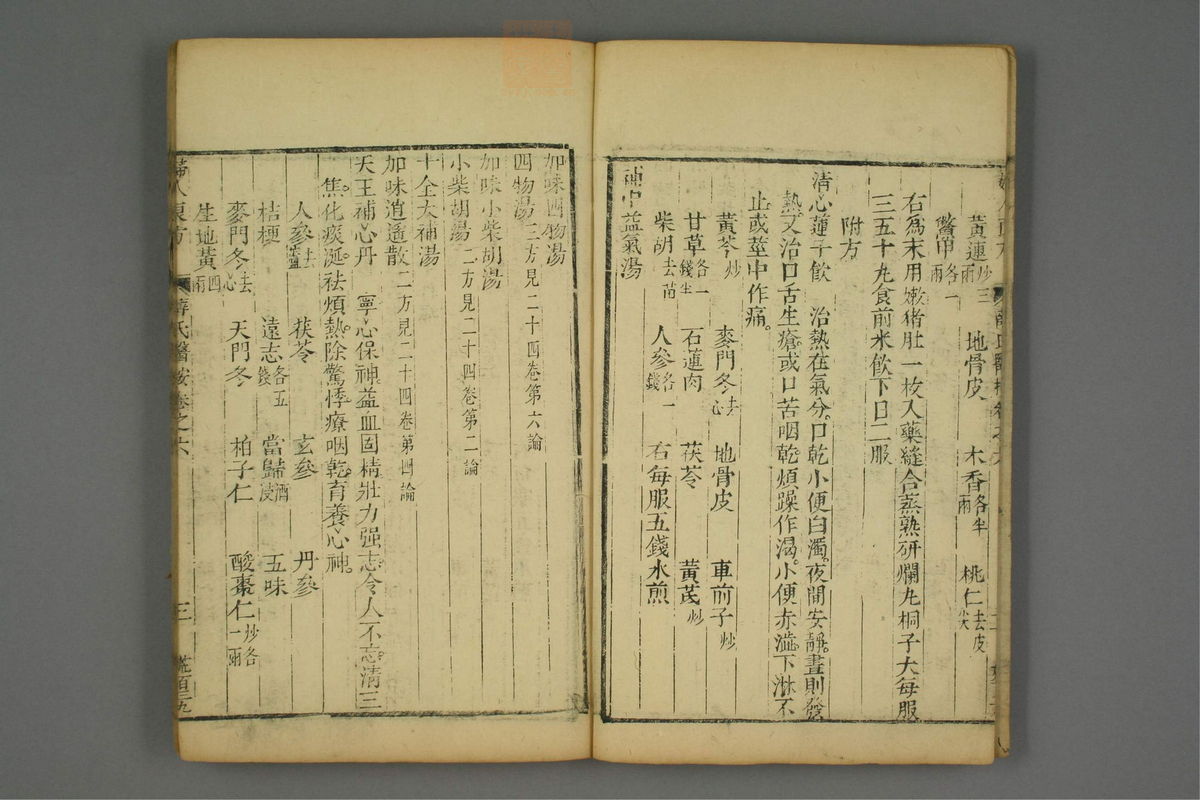 黃連炒三兩 地骨皮 木香各半兩 桃仁去皮尖
鱉甲各一兩
右爲末用嫩猪肚一枚入藥縫合蒸熟研爛丸桐子大每服
三五十丸食前米飲下日二服
附方
清心蓮子飲 治熱在氣分口乾小便白濁夜間安靜晝則發
熱又治口舌生瘡或口苦咽乾煩躁作渴小便赤澁下淋不
止或莖中作痛
黃芩炒 麥門冬去心 地骨皮 車前子炒
甘草各一錢半 石蓮肉 茯苓 黃芪炒
柴胡去苗 人參各一錢 右每服五錢水煎
補中益氣湯
加味四物湯
四物湯二方見二十四卷第六論
加味小柴胡湯
小柴胡湯二方見二十四卷第二論
十全大補湯
加味逍遙散二方見二十四卷第四論
天王補心丹 寧心保神益血固精壯力强志令人不忘清三
焦化痰涎祛煩熱除驚悸療咽乾育養心神
人參去蘆 茯苓 玄參 丹參
桔梗 遠志各五錢 當歸酒浸 五味
麥門冬去心 天門冬 柏子仁 酸棗仁炒各一兩
生地黃四兩
婦人良方 薛氏醫按卷之六 三